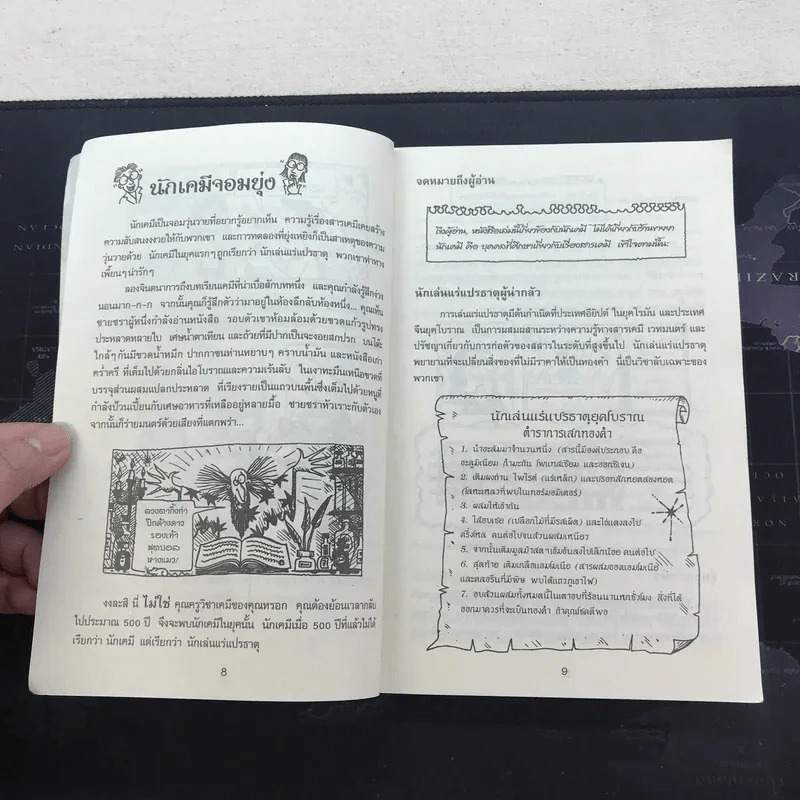 นักเคมีจอมยุ่ง
นักเคมีเป็นจอมวุ่นวายที่อยากรู้อยากเห็น ความรู้เรื่องสารเคมีเคยสร้าง
ความสับสนงงงวยให้กับพวกเขา และการทดลองที่ยุ่งเหยิงก็เป็นสาเหตุของความ
วุ่นวายด้วย นักเคมีในยุคแรกๆ ถูกเรียกว่า นักเล่นแร่แปรธาตุ พวกเขาทำทาง
เพี้ยนๆ น่ารักๆ
ลองจินตนาการถึงบทเรียนเคมีที่น่าเบื่อสักบทหนึ่ง และคุณกำลังรู้สึกง่วง
นอนมาก-ก-ก จากนั้นคุณก็รู้สึกตัวว่ามาอยู่ในห้องลึกลับห้องหนึ่ง... คุณเห็น
ชายชราผู้หนึ่งกำลังอ่านหนังสือ รอบตัวเขาห้อมล้อมด้วยขวดแก้วรูปทรง
ประหลาดหลายใบ เศษน้ำตาเทียน และถ้วยที่มีปากเป็นจะงอยสกปรก บนโต๊ะ
ใกล้ๆ กันมีขวดน้ำหมึก ปากกาขนห่านหยาบๆ คราบน้ำมัน และหนังสือเก่า
คร่ำครึ ที่เต็มไปด้วยกลิ่นไอโบราณและความเร้นลับ ในเงาทะมึนเหนือขวดที่
บรรจุส่วนผสมแปลกประหลาด ที่เรียงรายเป็นแถวบนพื้นซึ่งเต็มไปด้วยหนูที่
กำลังป้วนเปี้ยนกับเศษอาหารที่เหลืออยู่หลายมื้อ ชายชราหัวเราะกับตัวเอง
จากนั้นก็ร่ายมนตร์ด้วยเสียงที่แตกพร่า...
ดวงตากิ้งก่า
ปีกค้างคาว
รองเท้า
ฟุตบอล
หางแมว!
งงละสิ นี่ ไม่ใช่ คุณครูวิชาเคมีของคุณหรอก คุณต้องย้อนเวลากลับ
ไปประมาณ 500 ปี จึงจะพบนักเคมีในยุคนั้น นักเคมีเมื่อ 500 ปีที่แล้วไม่ได้
เรียกว่า นักเคมี แต่เรียกว่า นักเล่นแร่แปรธาตุ
8
จดหมายถึงผู้อ่าน
ถึงผู้อ่าน, หนังสือเล่มนี้เกี่ยวข้องกับนักเคมี ไม่ได้เกี่ยวกับร้านขายยา
นักเคมี คือ บุคคลที่ศึกษาเกี่ยวกับเรื่องสารเคมี เข้าใจตามนี้นะ
นักเล่นแร่แปรธาตุผู้น่ากลัว
การเล่นแร่แปรธาตุมีต้นกำเนิดที่ประเทศอียิปต์ ในยุคโรมัน และประเทศ
จีนยุคโบราณ เป็นการผสมผสานระหว่างความรู้ทางสารเคมี เวทมนตร์ และ
ปรัชญาเกี่ยวกับการก่อตัวของสสารในระดับที่สูงขึ้นไป นักเล่นแร่แปรธาตุ
พยายามที่จะเปลี่ยนสิ่งของที่ไม่มีราคาให้เป็นทองคำ นี่เป็นวิชาลับเฉพาะของ
พวกเขา
นักเล่นแร่แปรธาตุยุคโบราณ
ตำราการเสกทองคำ
1. นำอะลัมมาจำนวนหนึ่ง (สารนี้มีองค์ประกอบ คือ
อะลูมิเนียม กำมะถัน โพแทสเซียม และออกซิเจน)
2. เติมผงถ่าน ไพไรต์ (แร่เหล็ก) และปรอทสักหยดสองหยด
(โลหะเหลวที่พบในเทอร์มอมิเตอร์)
3. ผสมให้เข้ากัน
4. ใส่อบเชย (เปลือกไม้ที่มีรสเผ็ด) และไข่แดงลงไป
ครึ่งโหล คนต่อไปจนส่วนผสมเหนียว
5. จากนั้นเติมมูลม้าสดๆ เข้มข้นลงไปเล็กน้อย คนต่อไป
6. สุดท้าย เติมเกลือแอมโมเนีย (สารผสมของแอมโมเนีย
และคลอรีนที่มีพิษ พบได้แถวภูเขาไฟ)
7. อบส่วนผสมทั้งหมดนี้ในเตาอบที่ร้อนนานหกชั่วโมง สิ่งที่ได้
ออกมาควรที่จะเป็นทองคำ ถ้าคุณโชคดีพอ
9